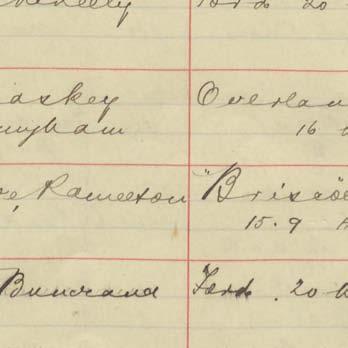 Ford 20
askey Overlan
ingham 16
Rameeton "Briscoe
15.9
Buncrana Ford. 20